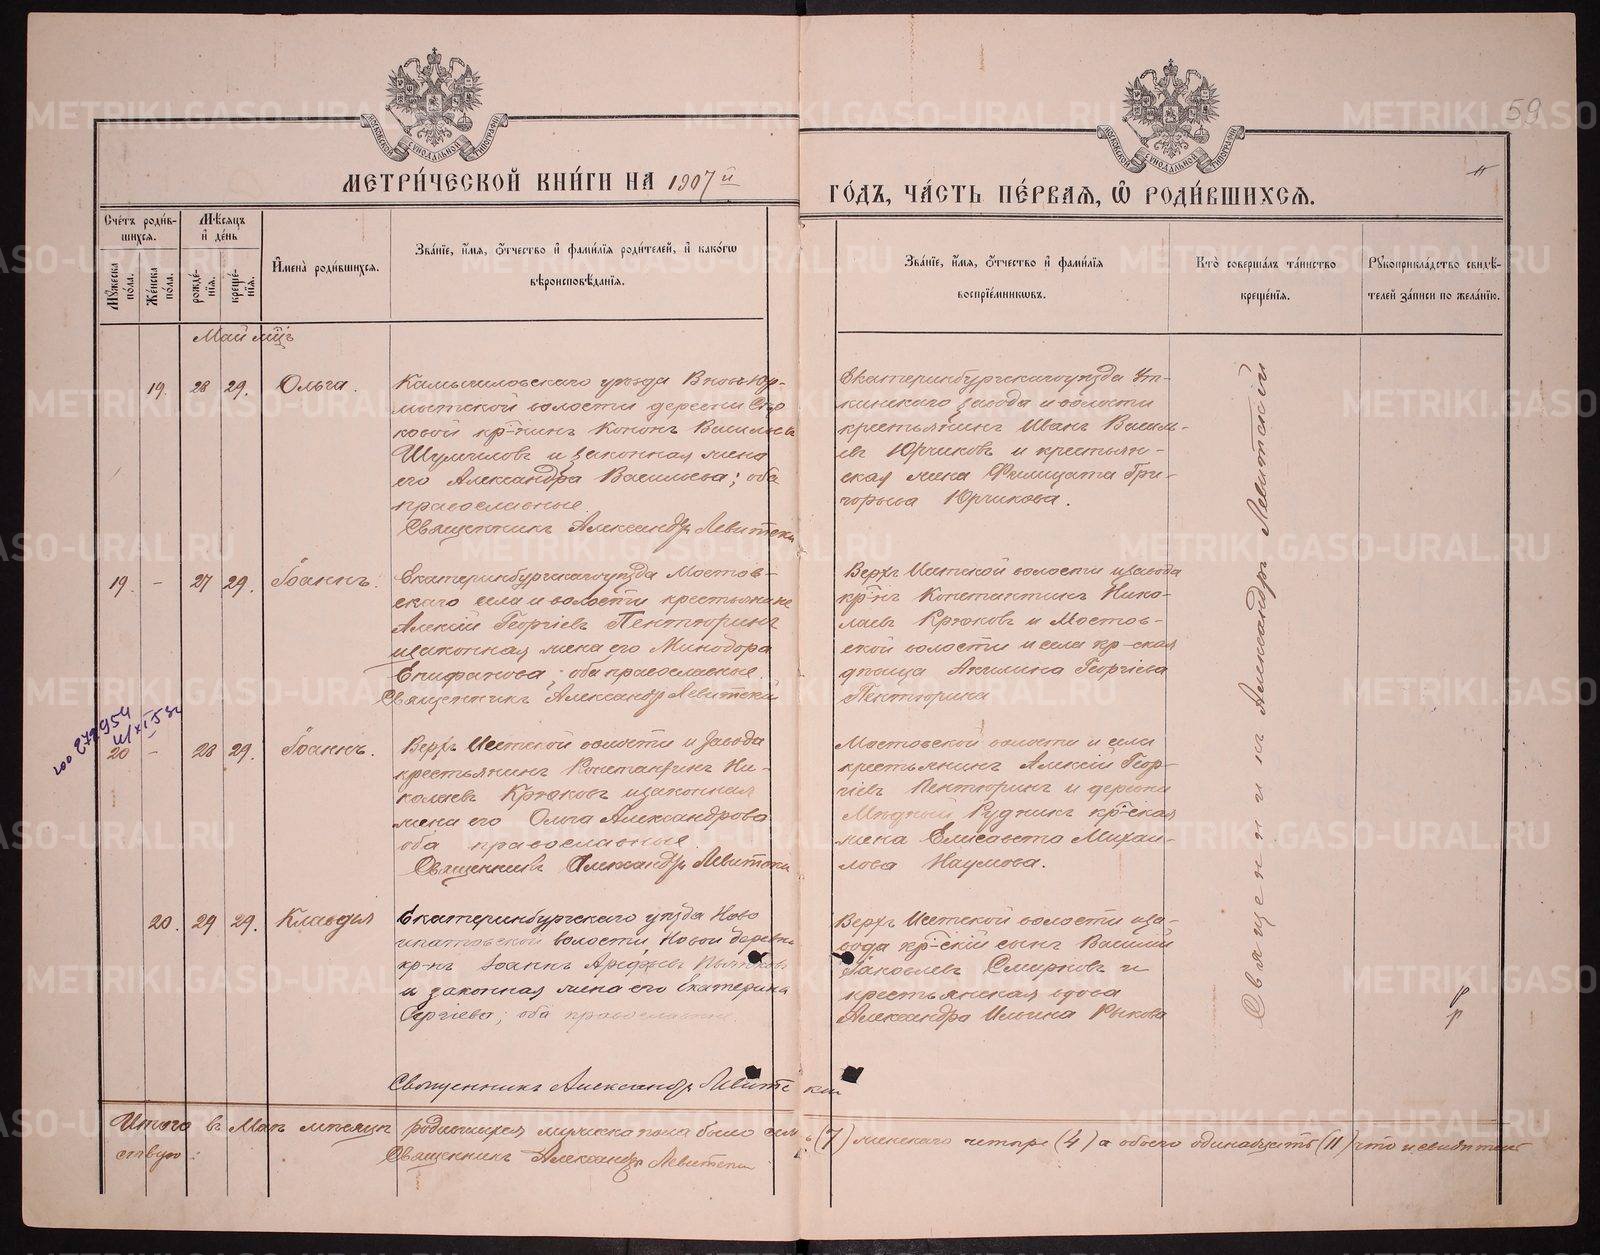 МЕТРИЧЕСКОЙ КНИГИ НА 1907й
ГОДЪ, ЧАСТЬ ПЕРВАЯ, Ѡ РОДИВШИХСЯ.
59
Счетъ родив-
шихся.
Мѣсяцъ
и день
Мужеска
пола.
Женска
пола.
рожде-
нїя.
креще-
нїя.
Имена родившихся.
Званїе, имя, отчество и фамилїя родителей, и какогѡ
вѣроисповѣданїя.
Званїе, имя, отчество и фамилїя
воспрїемниковъ.
Кто совершалъ таинство
крещенїя.
Рукоприкладство свидѣ-
телей записи по желанїю.
Май мцъ
19. 28 29. Ольга.
Камышловскаго уѣзда
волости деревни
Кононъ Васильевъ
и законная жена
его Александра Васильева; оба
православные.
Священникъ Александръ Левитскій
Екатеринбургскаго уѣзда Ут-
кинскаго завода и волости
крестьянинъ Иванъ Василь-
евъ Юрчиковъ и крестьян-
ская жена Филицата Гри-
горьева Юрчикова.
19. - 27 29. Іоаннъ.
Екатеринбургскаго уѣзда Мостов-
скаго села и волости крестьянинъ
Алексій Георгіевъ Пентюринъ
и законная жена его Минодора
Епифанова; оба православные.
Священникъ Александръ Левитскій
Верхъ Исетской волости и завода
кр-нъ Константинъ Нико-
лаевъ Крюковъ и Мостов-
ской волости и села кр-ская
дѣвица Акилина Георгіева
Пентюрина
20 - 28 29. Іоаннъ.
Верхъ Исетской волости и завода
крестьянинъ Константинъ Ни-
колаевъ Крюковъ и законная
жена его Ольга Александрова
оба православные.
Священникъ Александръ Левитскій
Мостовской волости и села
крестьянинъ Алексій Геор-
гіевъ Пентюринъ и деревни
Мѣдный Рудникъ кр-ская
жена Елисавета Михаи-
лова Наумова.
20. 29 29. Клавдія
Екатеринбургскаго уѣзда Ново
волости, Новой деревни
кр-нъ Іоаннъ
и законная жена его Екатерина
Сергіева; оба православные.
Священникъ Александръ Левитскій
Верхъ Исетской волости и за-
вода кр-скій сынъ Василій
Іаковлевъ Смирновъ и
крестьянская вдова
Александра Ильина Рыкова
Священникъ Александръ Левитскій
Итого въ Маѣ мѣсяцѣ родившихся мужска пола было семь (7) женскаго четыре (4) а обоего одинадцать (11) что и свидѣтель
ствую:
Священникъ Александръ Левитскій
METRIKI.GASO-URAL.RU